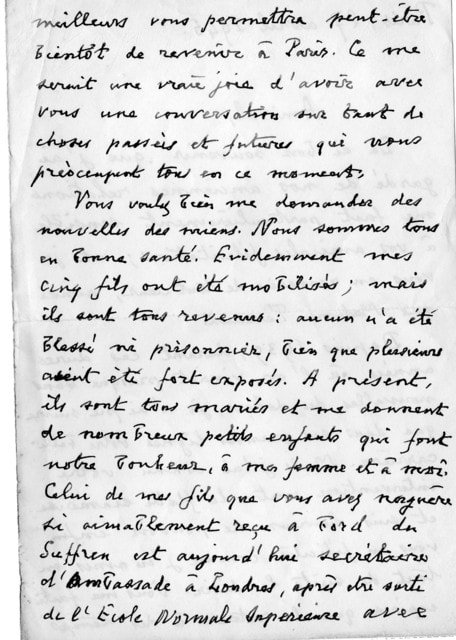 meilleurs vous permettra peut-être
bientôt de revenir à Paris. Ce me
serait une vraie joie d'avoir avec
vous une conversation sur tant de
choses passées et futures qui nous
préoccupent tous en ce moment.
Vous voulez bien me demander des
nouvelles des miens. Nous sommes tous
en bonne santé. Evidemment mes
cinq fils ont été mobilisés ; mais
ils sont tous revenus : aucun n'a été
blessé ni prisonnier, bien que plusieurs
aient été fort exposés. A présent,
ils sont tous mariés et me donnent
de nombreux petits enfants qui font
notre bonheur, à ma femme et à moi.
Celui de mes fils que vous avez naguère
si aimablement reçu à bord du
Suffren est aujourd'hui secrétaire
d'Ambassade à Londres, après être sorti
de l'Ecole Normale Supérieure avec